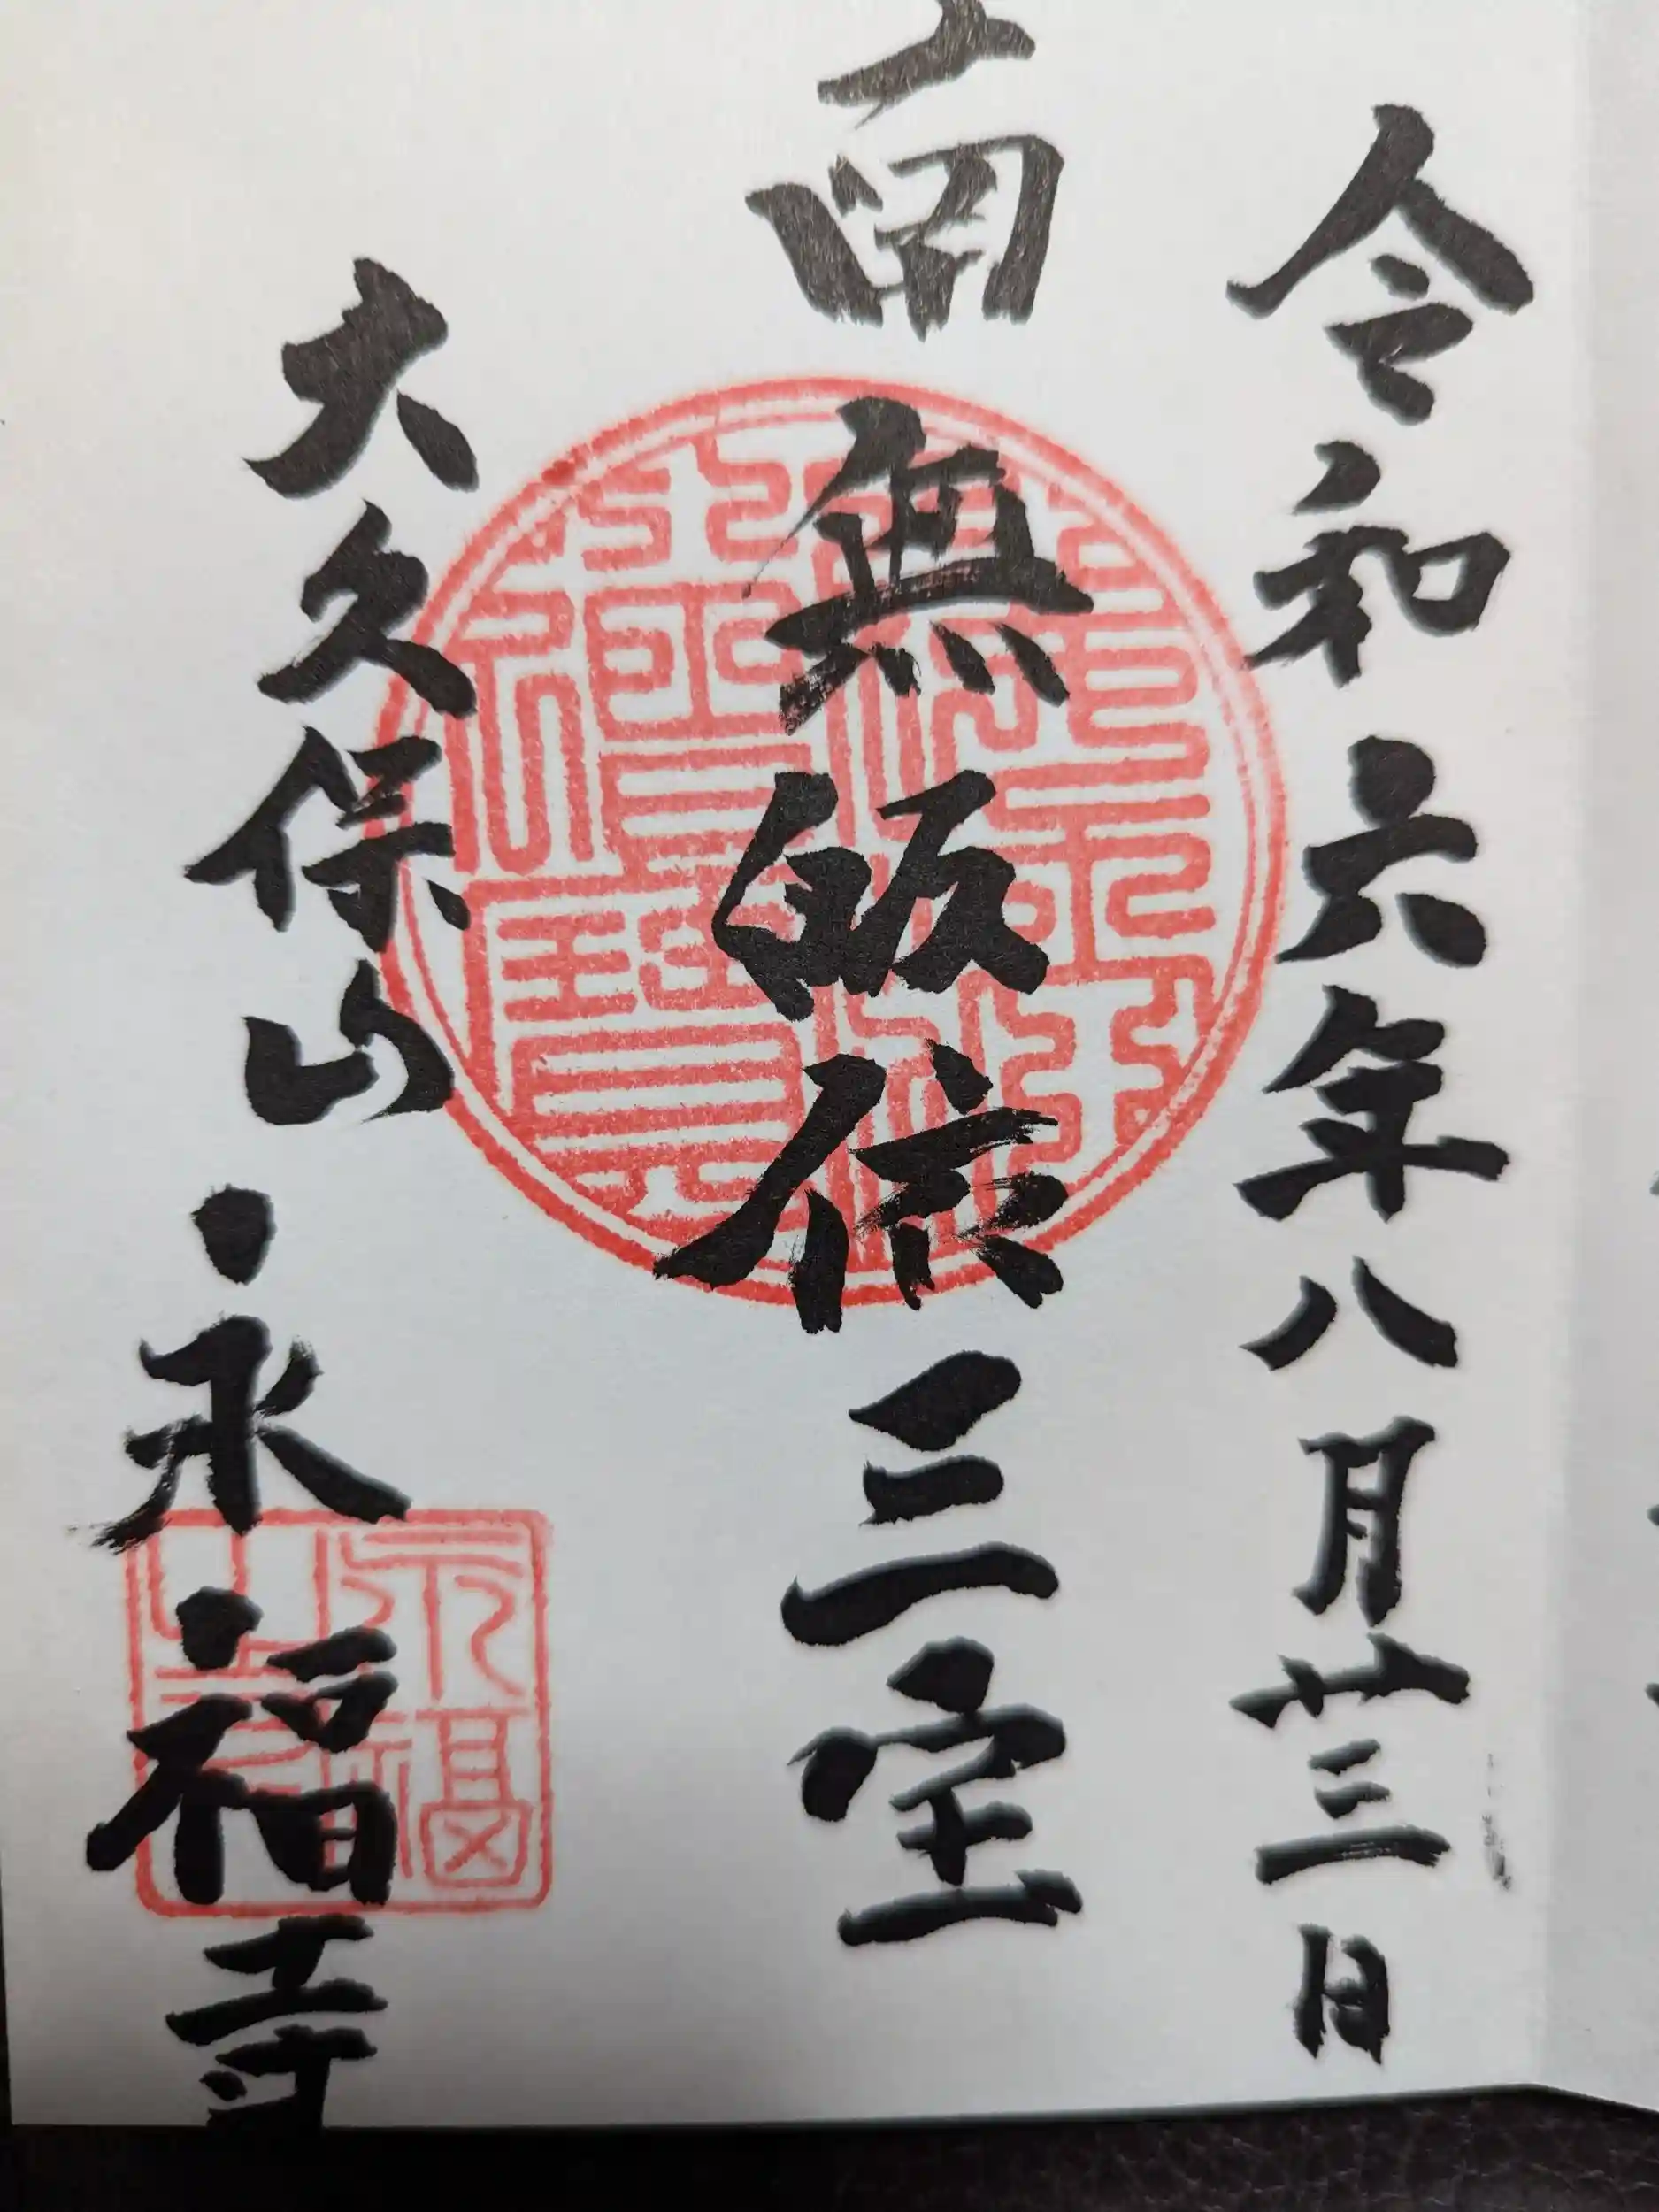 令和六年八月廿三日
南無皈依三宝
大久保山永福寺